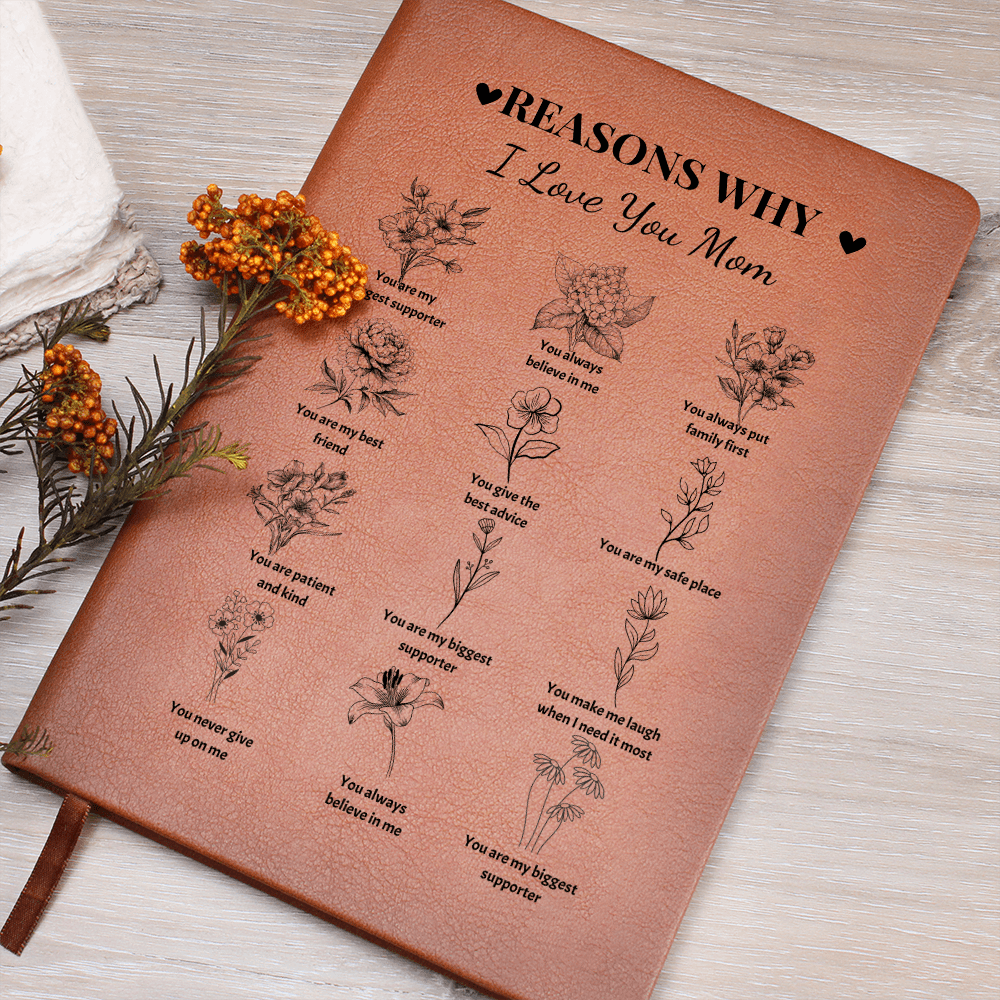 REASONS WHY
I Love You Mom
You are my
gest supporter
You always
believe in me
You always put
family first
You are my best
friend
You give the
best advice
You are my safe place
You are patient
and kind
You are my biggest
supporter
You make me laugh
when I need it most
You never give
up on me
You always
believe in me
You are my biggest
supporter